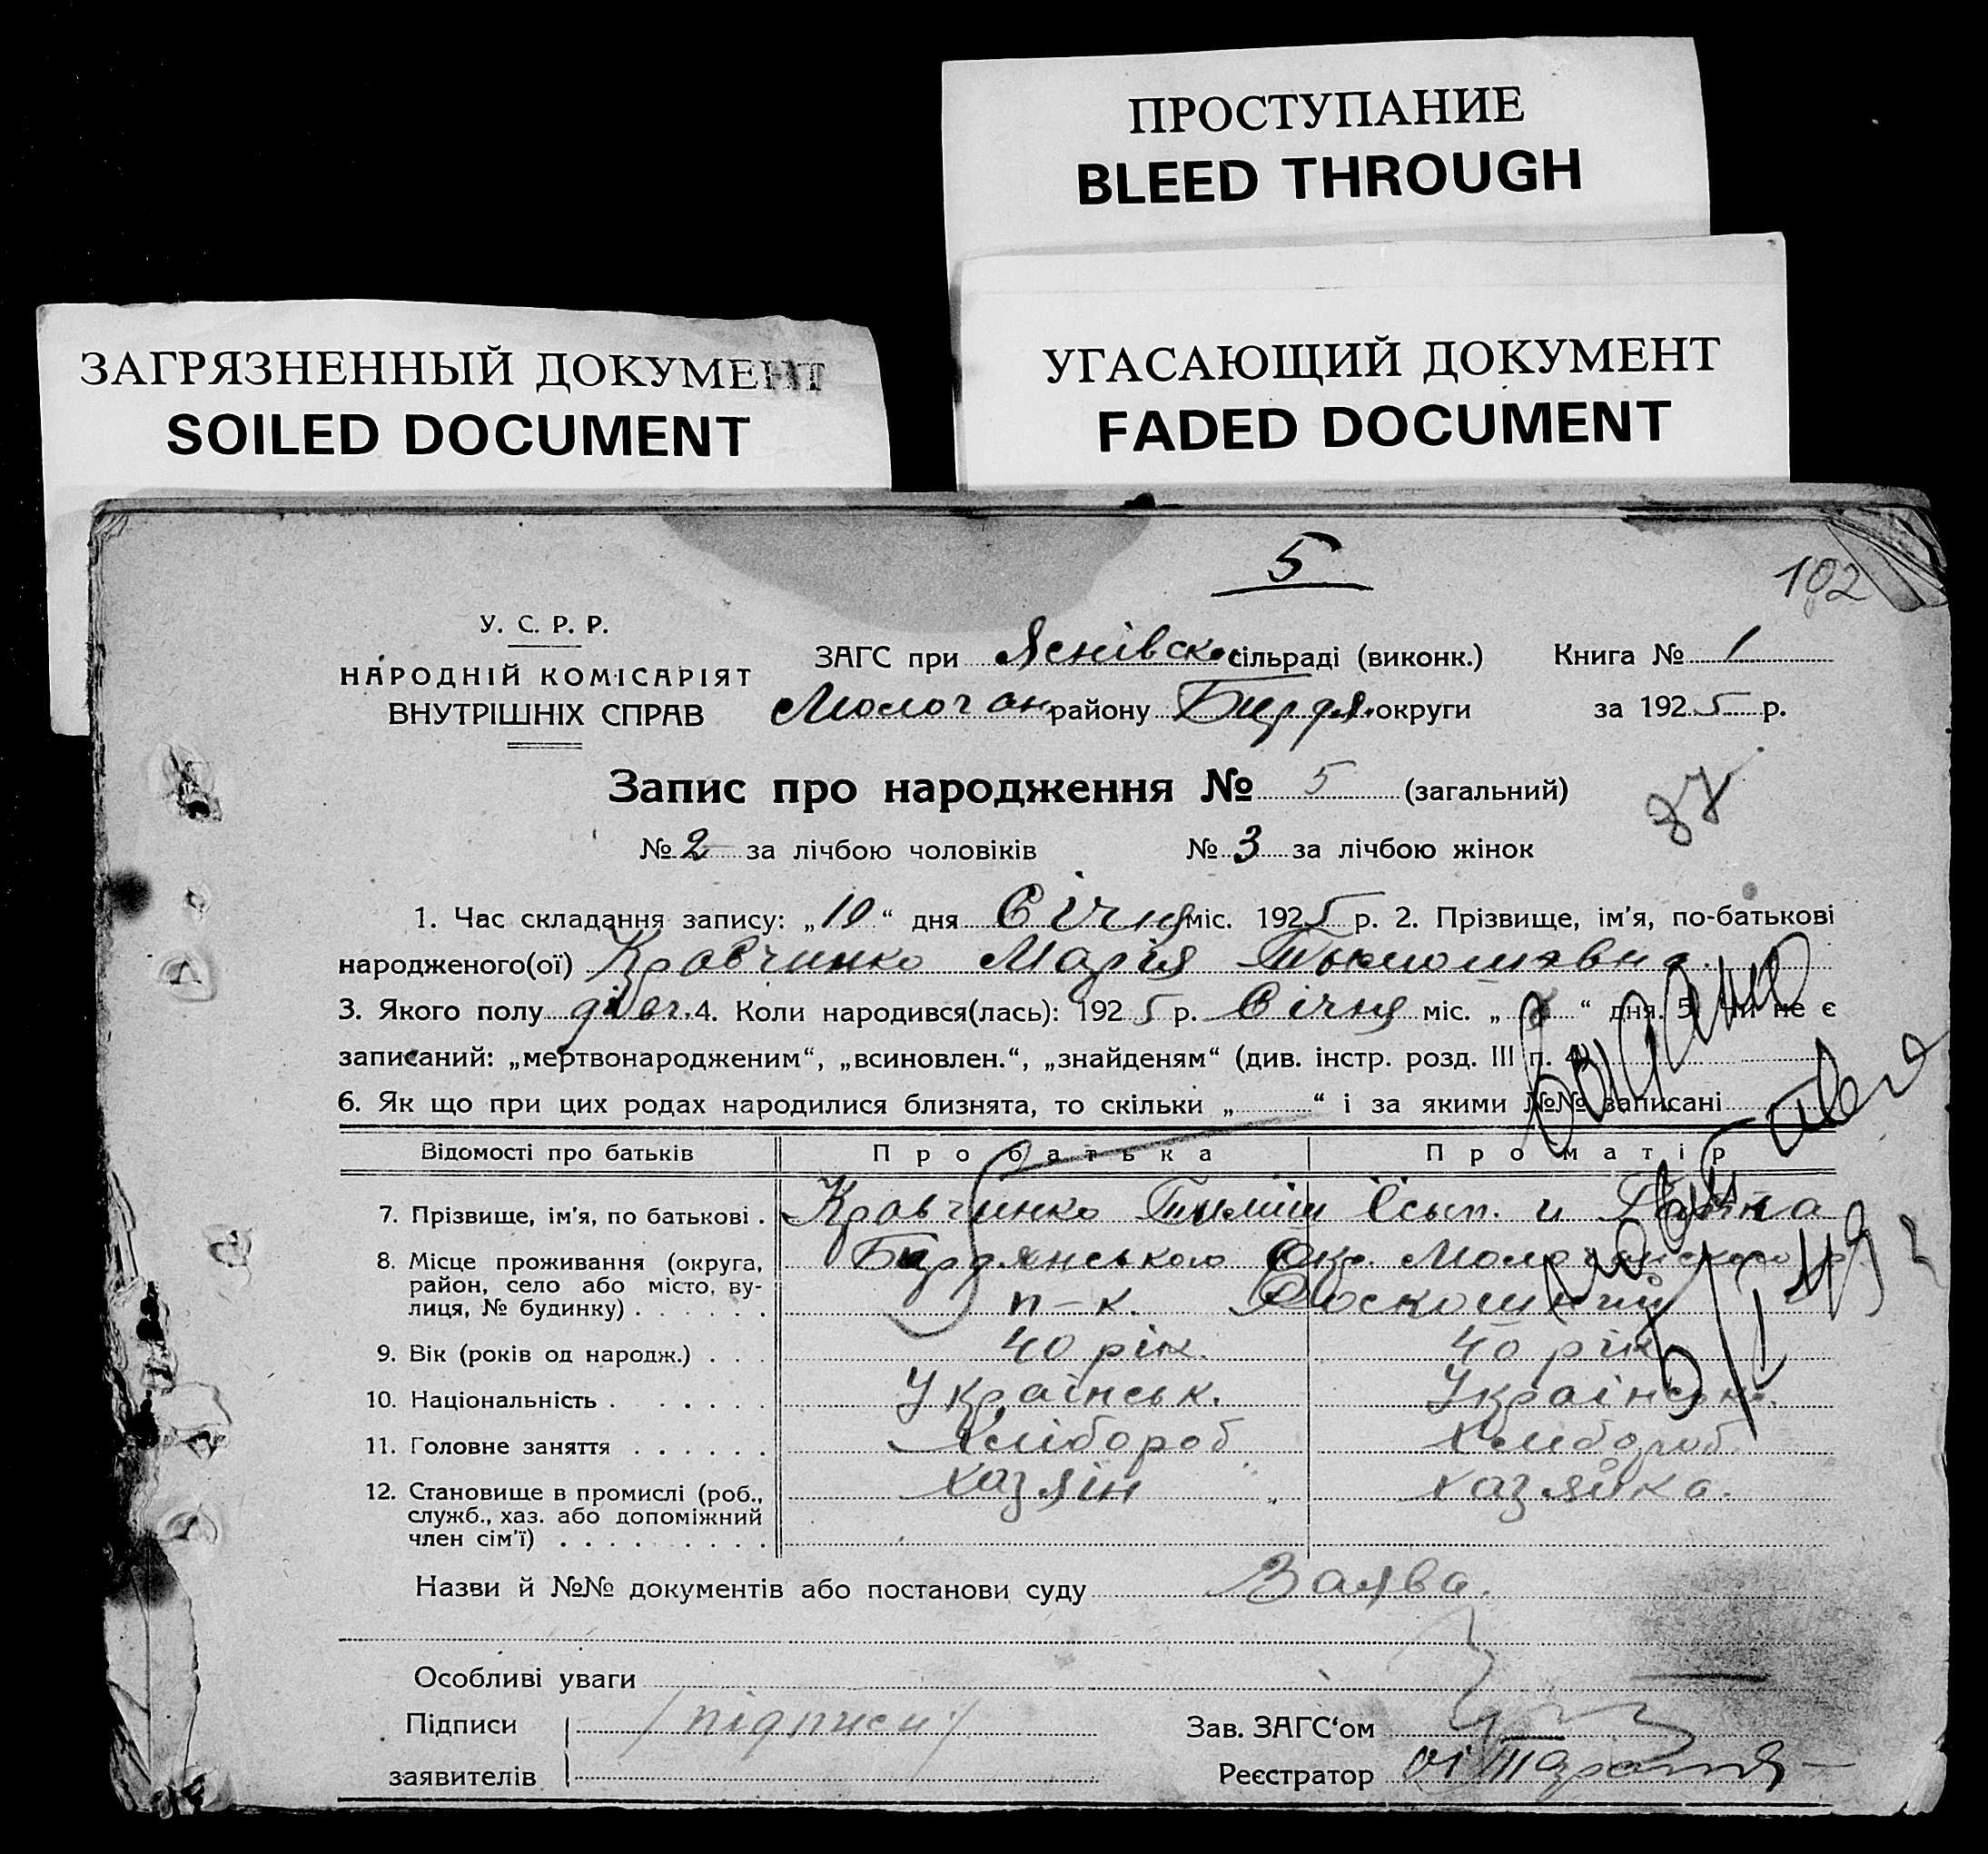 ПРОСТУПАНИЕ
BLEED THROUGH
ЗАГРЯЗНЕННЫЙ ДОКУМЕНТ
SOILED DOCUMENT
УГАСАЮЩИЙ ДОКУМЕНТ
FADED DOCUMENT
5
102
У. С. Р. Р.
НАРОДНІЙ КОМІСАРІЯТ
ВНУТРІШНІХ СПРАВ
ЗАГС при Яснівск. сільраді (виконк.) Книга № 1
Молочан району Бердя. округи за 1925 р.
Запис про народження № 5 (загальний)
37
№ 2 за лічбою чоловіків № 3 за лічбою жінок
1. Час складання запису: „10“ дня Січня міс. 1925 р. 2. Прізвище, ім'я, по-батькові
народженого(ої) Кравчинко Марія
3. Якого полу дівч. 4. Коли народився(лась): 1925 р. Січня міс. „ “ дня. 5. Чи не є
записаний: „мертвонародженим“, „всиновлен.“, „знайденям“ (див. інстр. розд. III п. 4)
6. Як що при цих родах народилися близнята, то скільки „ “ і за якими №№ записані
Відомості про батьків Про батька Про матір
7. Прізвище, ім'я, по батькові . Кравчинко Тиміш Єсып. и
8. Місце проживання (округа, район, село або місто, вулиця, № будинку) . . . . . . Бердянського Окр. Молочанського р.
п-к. Роскошний
9. Вік (років од народж.) . . . 40 рік. 40 рік
10. Національність . . . . . . . Українськ. Українськ.
11. Головне заняття . . . . . . Хлібороб Хлібороб
12. Становище в промислі (роб., служб., хаз. або допоміжний член сім'ї) . . . . . . . . . хазяін хазяйка.
Видано
5/I 49
Назви й №№ документів або постанови суду Заява.
Особливі уваги
Підписи /підписи/ Зав. ЗАГС‘ом
заявителів Реєстратор